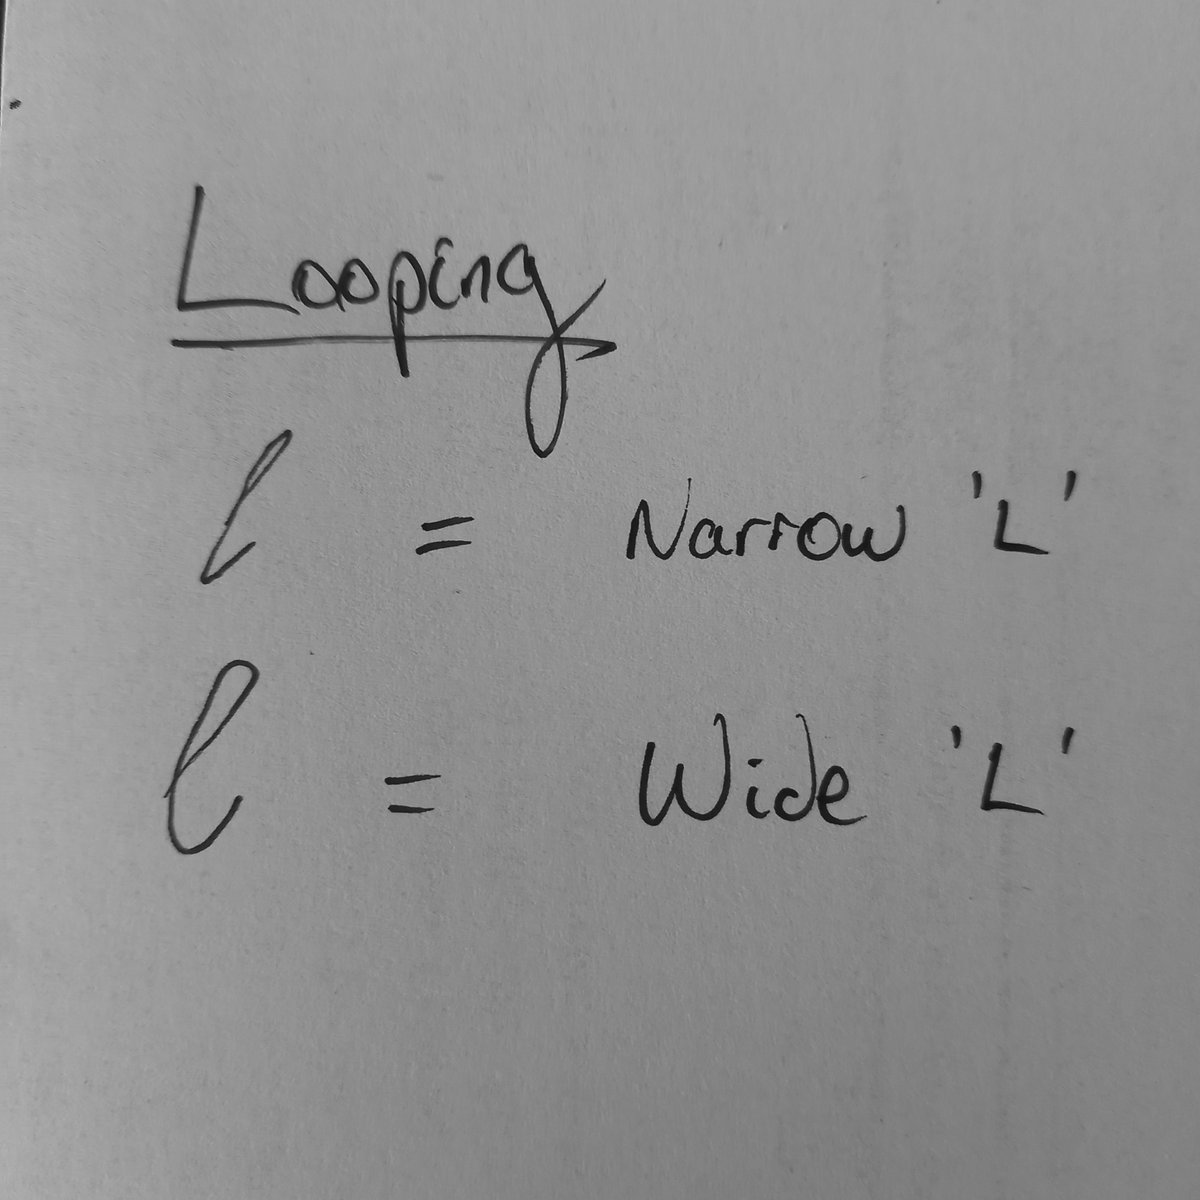 Looping
l = Narrow 'L'
l = Wide 'L'